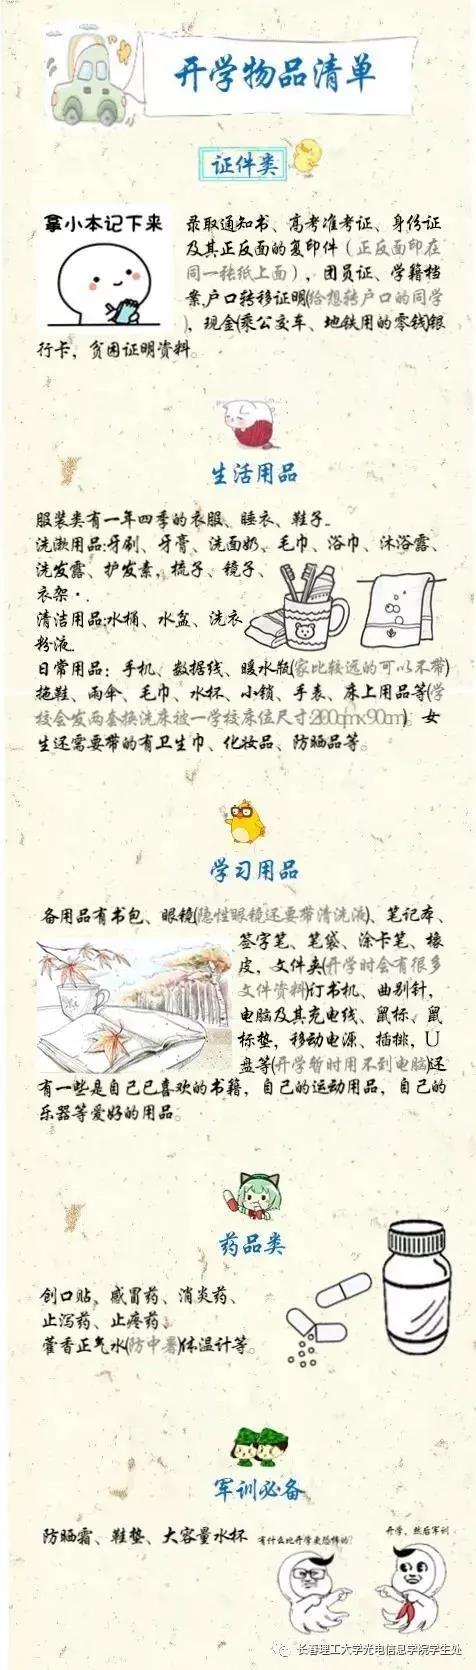 开学物品清单
证件类
拿小本记下来
录取通知书、高考准考证、身份证
及其正反面的复印件（正反面印在
同一张纸上面），团员证、学籍档
案,户口转移证明(给想转户口的同学
)，现金(乘公交车、地铁用的零钱)银
行卡，贫困证明资料。
生活用品
服装类有一年四季的衣服、睡衣、鞋子..
洗漱用品:牙刷、牙膏、洗面奶、毛巾、浴巾、沐浴露、
洗发露、护发素，梳子、镜子、
衣架·.
清洁用品:水桶、水盆、洗衣
粉液.
日常用品：手机、数据线、暖水瓶(家比较远的可以不带)
拖鞋、雨伞、毛巾、水杯、小锁、手表、床上用品等(学
校会发两套换洗床被一学校床位尺寸:200cmx90cm)。女
生还需要带的有卫生巾、化妆品、防晒品等。
学习用品
备用品有书包、眼镜(隐性眼镜还要带清洗液)、笔记本、
签字笔、笔袋、涂卡笔、橡
皮，文件夹(开学时会有很多
文件资料)订书机、曲别针，
电脑及其充电线、鼠标、鼠
标垫，移动电源、插排，U
盘等(开学暂时用不到电脑)还
有一些是自己已喜欢的书籍，自己的运动用品，自己的
乐器等爱好的用品。
药品类
创口贴、感冒药、消炎药、
止泻药、止疼药、
藿香正气水(防中暑)体温计等。
军训必备
防晒霜、鞋垫、大容量水杯
有什么比开学更恐怖的?
开学，然后军训
长春理工大学光电信息学院学生处